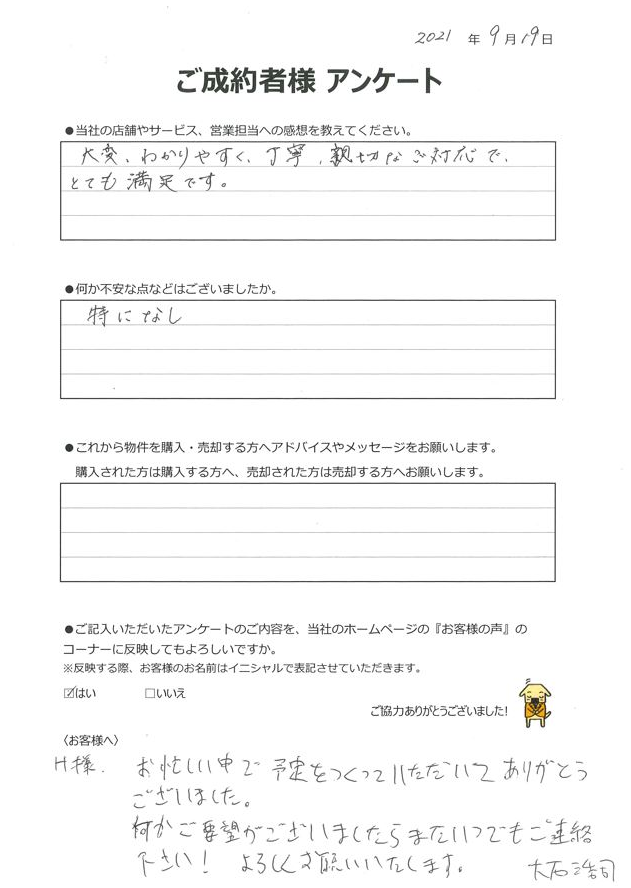 2021 年 9月19日
ご成約者様 アンケート
●当社の店舗やサービス、営業担当への感想を教えてください。
大変、わかりやすく、丁寧、親切なご対応で、
とても満足です。
●何か不安な点などはございましたか。
特になし
●これから物件を購入・売却する方へアドバイスやメッセージをお願いします。
購入された方は購入する方へ、売却された方は売却する方へお願いします。
●ご記入いただいたアンケートのご内容を、当社のホームページの『お客様の声』の
コーナーに反映してもよろしいですか。
※反映する際、お客様のお名前はイニシャルで表記させていただきます。
☑はい □いいえ
ご協力ありがとうございました!
〈お客様へ〉
H様. お忙しい中で予定をつくっていただいてありがとう
ございました。
何かご要望がございましたらまたいつでもご連絡
下さい! よろしくお願いいたします。 大石浩司